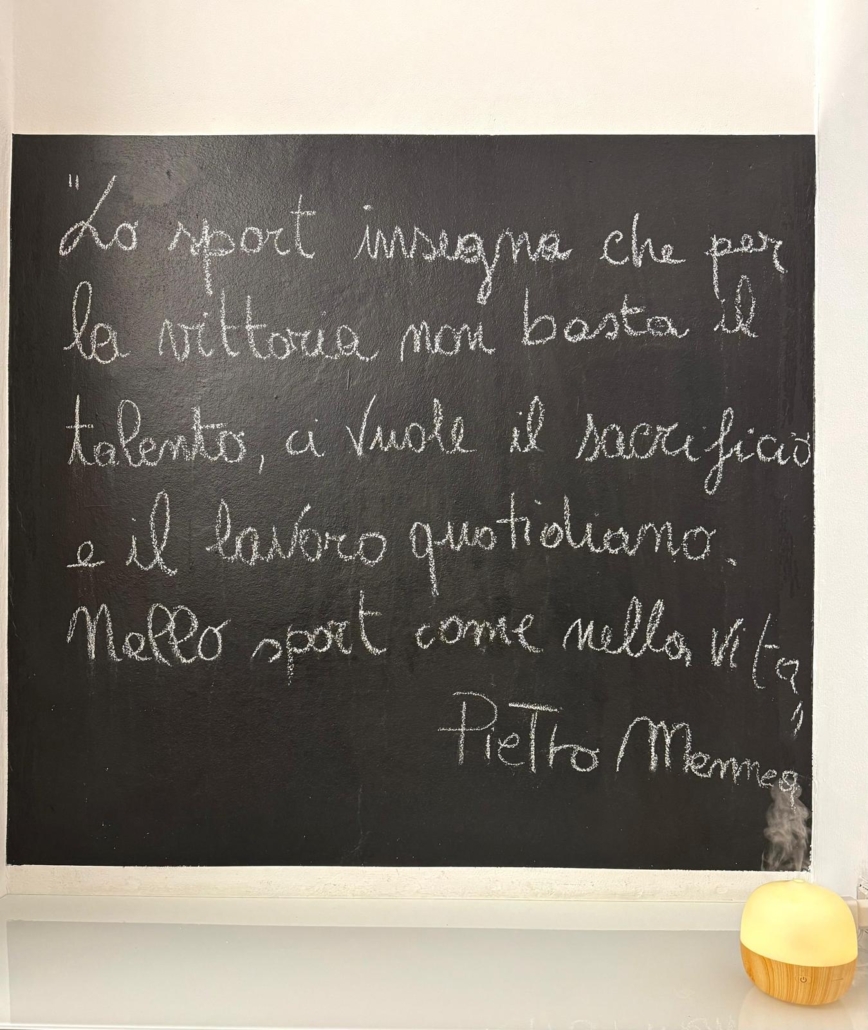 "Lo sport insegna che per
la vittoria non basta il
talento, ci vuole il sacrificio
e il lavoro quotidiano.
Nello sport come nella vita"
Pietro Mennea